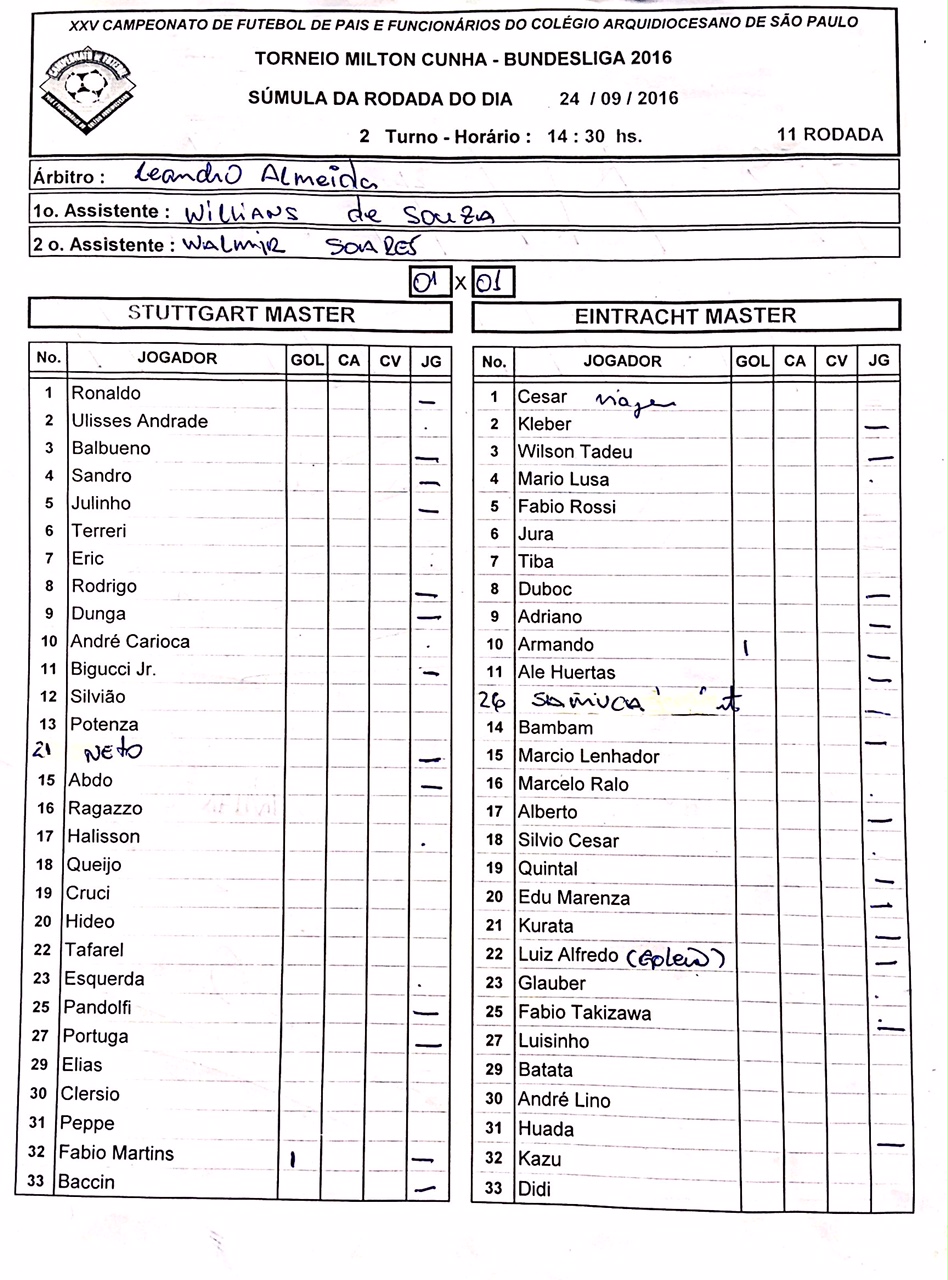 XXV CAMPEONATO DE FUTEBOL DE PAIS E FUNCIONÁRIOS DO COLÉGIO ARQUIDIOCESANO DE SÃO PAULO
TORNEIO MILTON CUNHA - BUNDESLIGA 2016
SÚMULA DA RODADA DO DIA 24 / 09 / 2016
2 Turno - Horário : 14 : 30 hs. 11 RODADA
Árbitro : Leandro Almeida
1o. Assistente : Willians de Souza
2 o. Assistente : Walmir Soares
01 x 01
STUTTGART MASTER
No. JOGADOR GOL CA CV JG
1 Ronaldo —
2 Ulisses Andrade .
3 Balbueno —
4 Sandro —
5 Julinho —
6 Terreri
7 Eric .
8 Rodrigo —
9 Dunga —
10 André Carioca .
11 Bigucci Jr. —
12 Silvião
13 Potenza
21 NETO —
15 Abdo —
16 Ragazzo
17 Halisson .
18 Queijo
19 Cruci
20 Hideo
22 Tafarel
23 Esquerda .
25 Pandolfi —
27 Portuga —
29 Elias
30 Clersio
31 Peppe
32 Fabio Martins I —
33 Baccin —
EINTRACHT MASTER
No. JOGADOR GOL CA CV JG
1 Cesar viagem
2 Kleber —
3 Wilson Tadeu —
4 Mario Lusa .
5 Fabio Rossi
6 Jura
7 Tiba
8 Duboc —
9 Adriano —
10 Armando I —
11 Ale Huertas —
26 SAMUCA —
14 Bambam —
15 Marcio Lenhador
16 Marcelo Ralo .
17 Alberto —
18 Silvio Cesar .
19 Quintal —
20 Edu Marenza —
21 Kurata —
22 Luiz Alfredo —
23 Glauber .
25 Fabio Takizawa —
27 Luisinho
29 Batata
30 André Lino
31 Huada —
32 Kazu
33 Didi